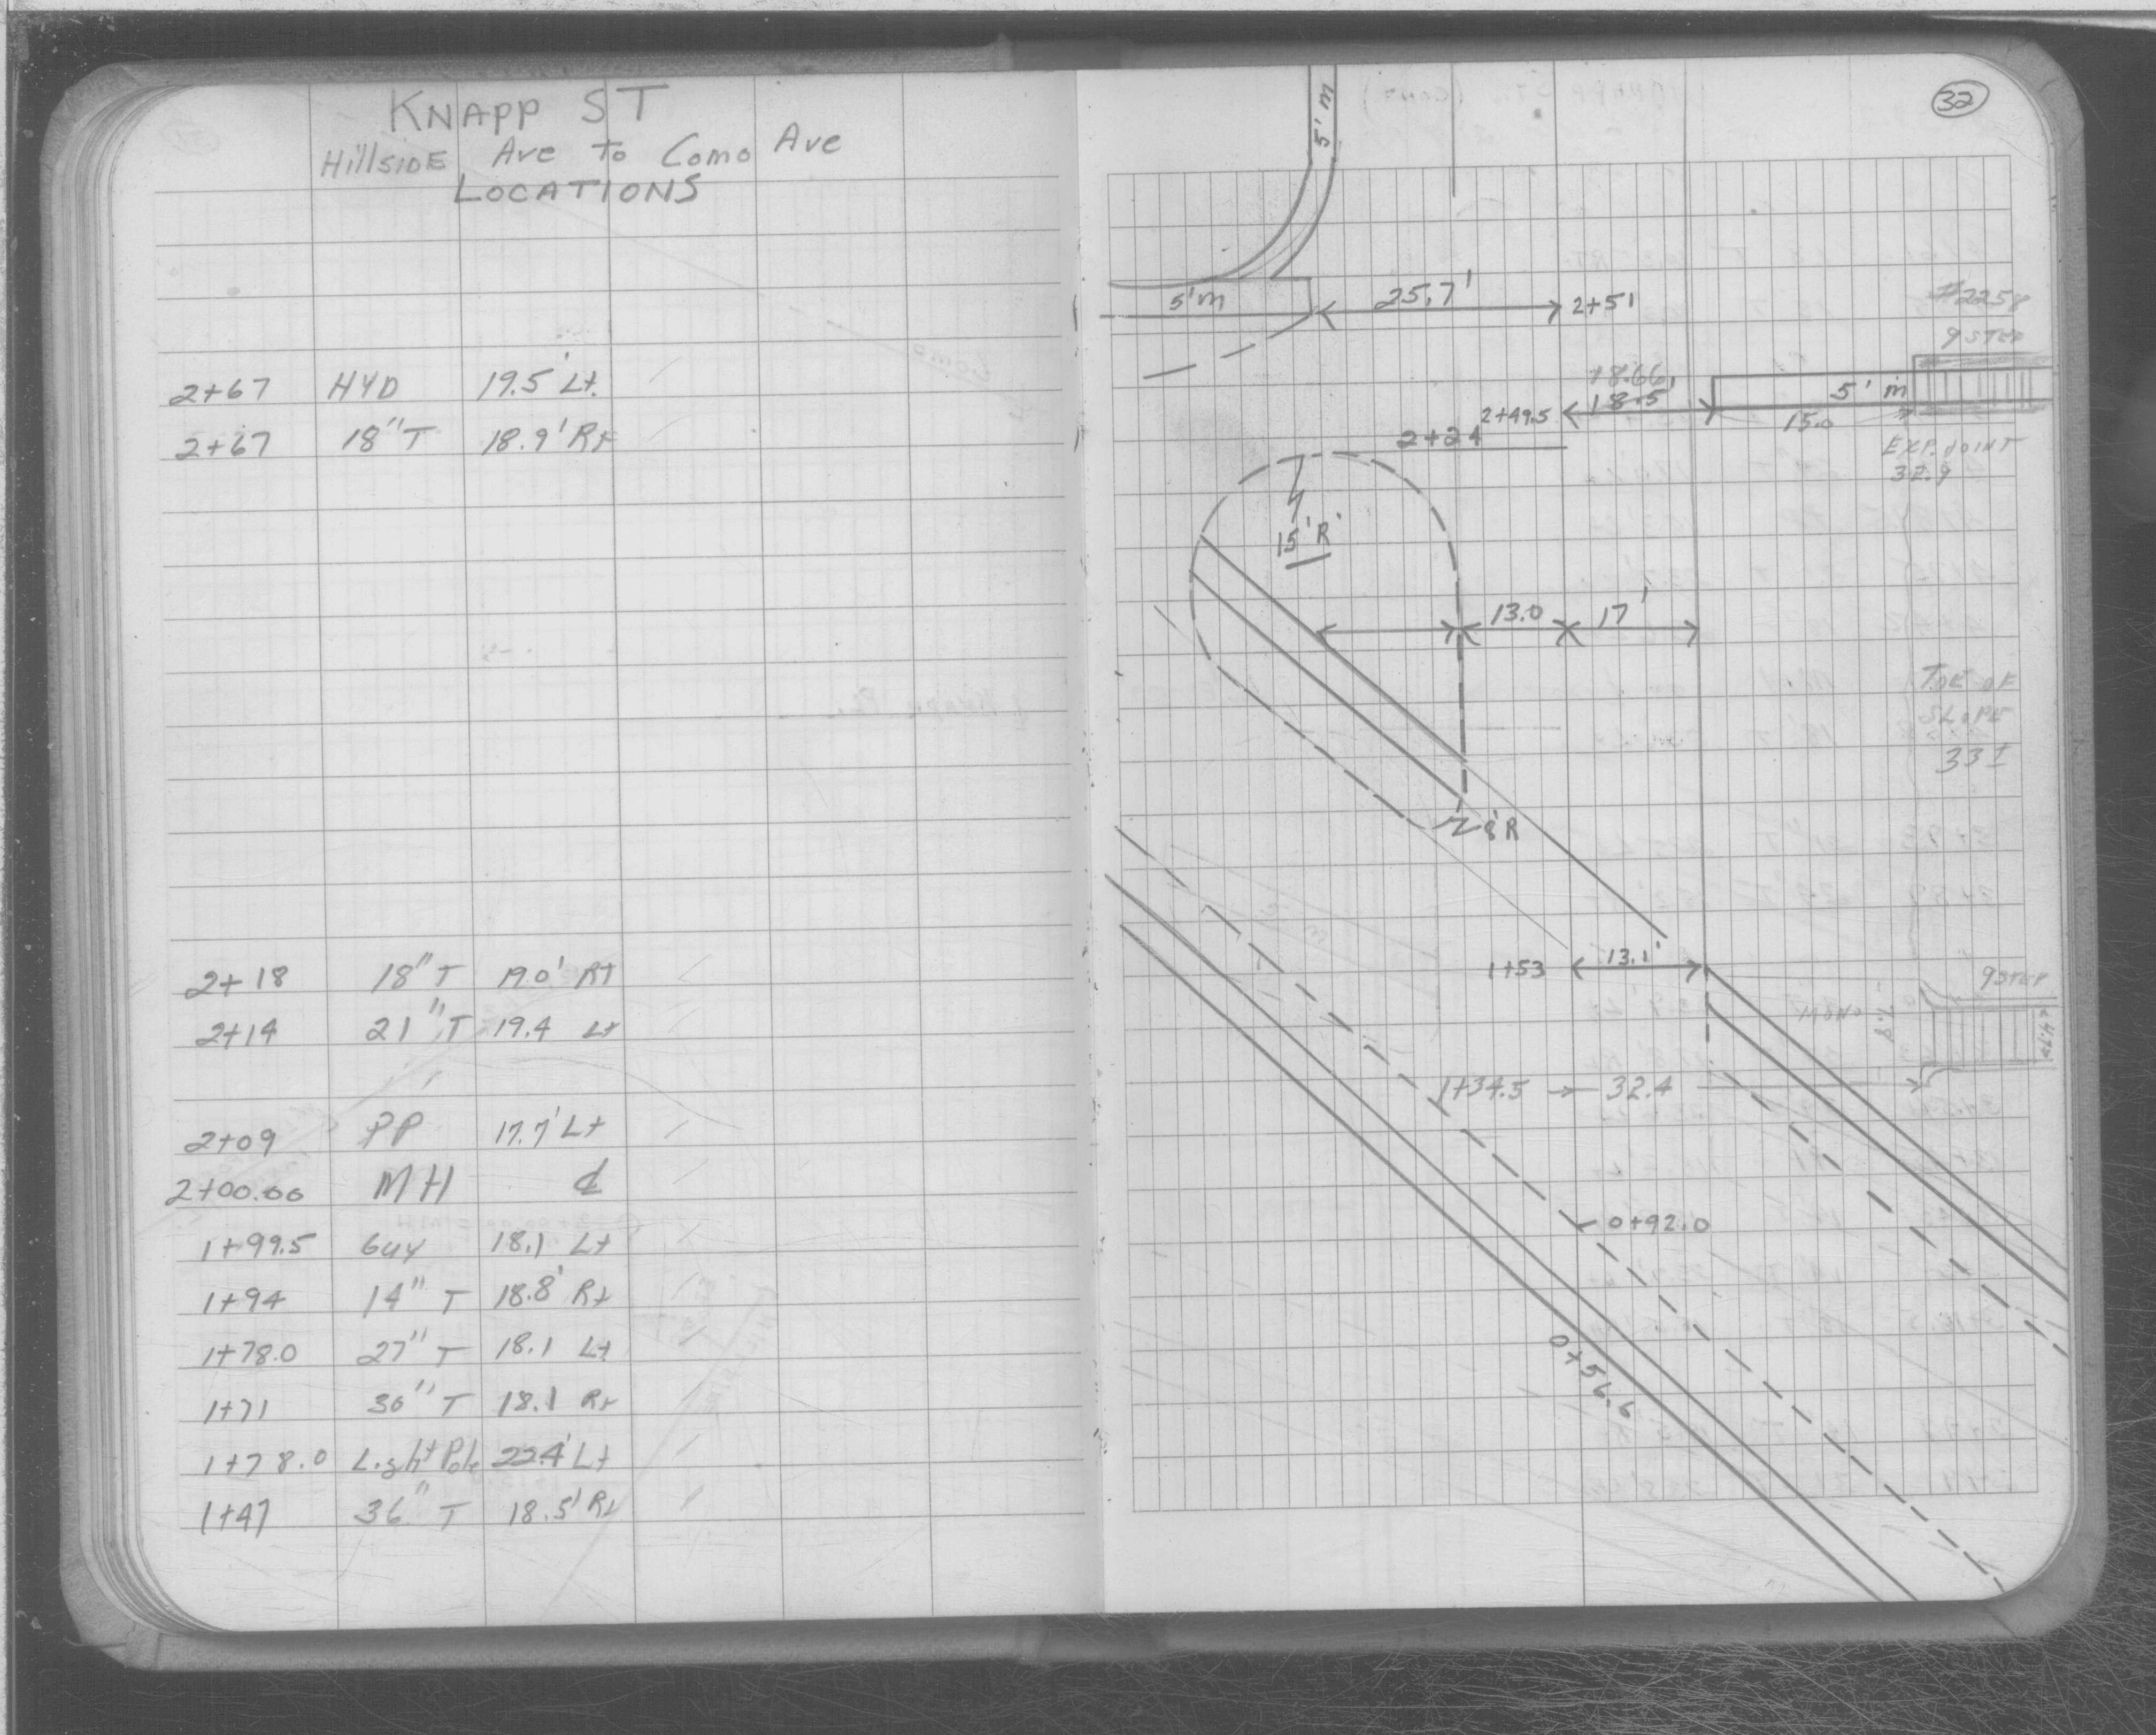 KNAPP ST
HillSIDE Ave to Como Ave
LOCATIONS
2+67 HYD 19.5' Lt.
2+67 18"T 18.9' Rt
2+18 18"T 19.0' RT
2+14 21"T 19.4 Lt
2+09 PP 17.7' Lt
2+00.00 MH ℄
1+99.5 Guy 18.1 Lt
1+94 14" T 18.8' Rt
1+78.0 27" T 18.1 Lt
1+71 30" T 18.1 Rt
1+78.0 Light Pole 22.4' Lt
1+47 36" T 18.5' Rt
32
5' m
5' m 25.7' 2+51
#2258
9 STEP
18.66
2+49.5 18.5 5' m
2+24 15.0
EXP. JOINT
32.9
15' R
13.0 17'
TOE OF
SLOPE
33±
8' R
1+53 13.1'
9 STEP
MONO 7.8
1+34.5 → 32.4
0+92.0
0+56.6